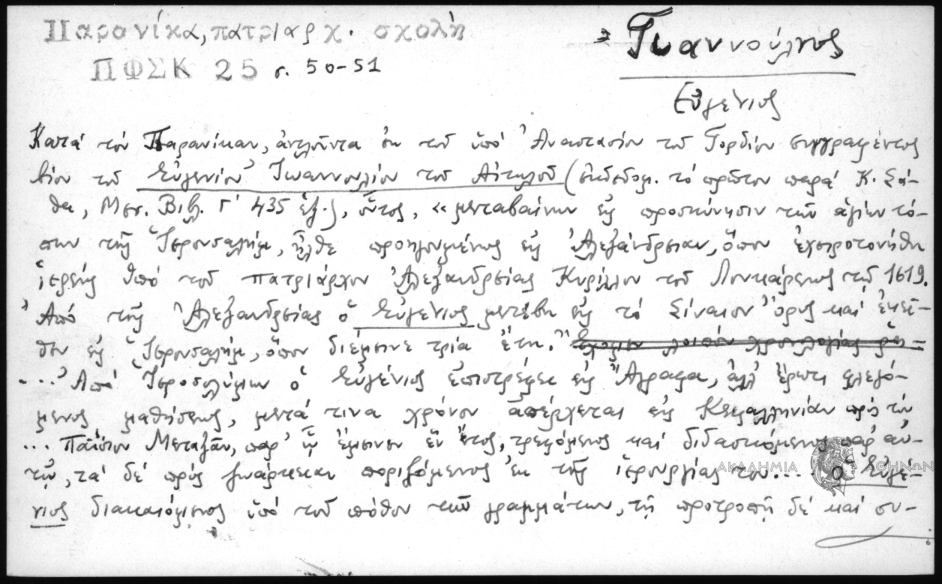 Παρανίκα, πατριαρχ. σχολή
ΠΦΣΚ 25 σ. 50-51
Ἰωαννούλιος
Εὐγένιος
Κατά τόν Παρανίκαν, ἀντλοῦντα ἐκ τοῦ ὑπό Ἀναστασίου τοῦ Γορδίου συγγραφέντος
βίου τοῦ Εὐγενίου Ἰωαννουλίου τοῦ Αἰτωλοῦ (ἐκδεδομ. τό πρῶτον παρά Κ. Σά-
θα, Μεσ. Βιβλ. Γ' 435 ἑξ.), οὗτος, «μεταβαίνων εἰς προσκύνησιν τῶν ἁγίων τό-
πων τῆς Ἱερουσαλήμ, ἦλθε προηγουμένως εἰς Ἀλεξάνδρειαν, ὅπου ἐχειροτονήθη
ἱερεύς ὑπό τοῦ πατριάρχου Ἀλεξανδρείας Κυρίλλου τοῦ Λουκάρεως τῷ 1619.
Ἀπό τῆς Ἀλεξανδρείας ὁ Εὐγένιος μετέβη εἰς τό Σίναιον Ὄρος καί ἐκεῖ-
θεν εἰς Ἱερουσαλήμ, ὅπου διέμεινε τρία ἔτη.
... Ἀπό Ἱεροσολύμων ὁ Εὐγένιος ἐπιστρέφει εἰς Ἄγραφα, ἀλλ' ἔρωτι φλεγό-
μενος μαθήσεως, μετά τινα χρόνον ἀπέρχεται εἰς Κεφαλληνίαν πρός τόν
... Παΐσιον Μεταξᾶν, παρ' ᾧ ἔμεινεν ἕν ἔτος, τρεφόμενος καί διδασκόμενος παρ' αὐ-
τῷ, τά δέ πρός ζωάρκειαν ποριζόμενος ἐκ τῆς ἱερουργίας του... Ὁ Εὐγέ-
νιος διακαιόμενος ὑπό τοῦ πόθου τῶν γραμμάτων, τῇ προτροπῇ δέ καί συ-
ΑΚΑΔΗΜΙΑ ΑΘΗΝΩΝ